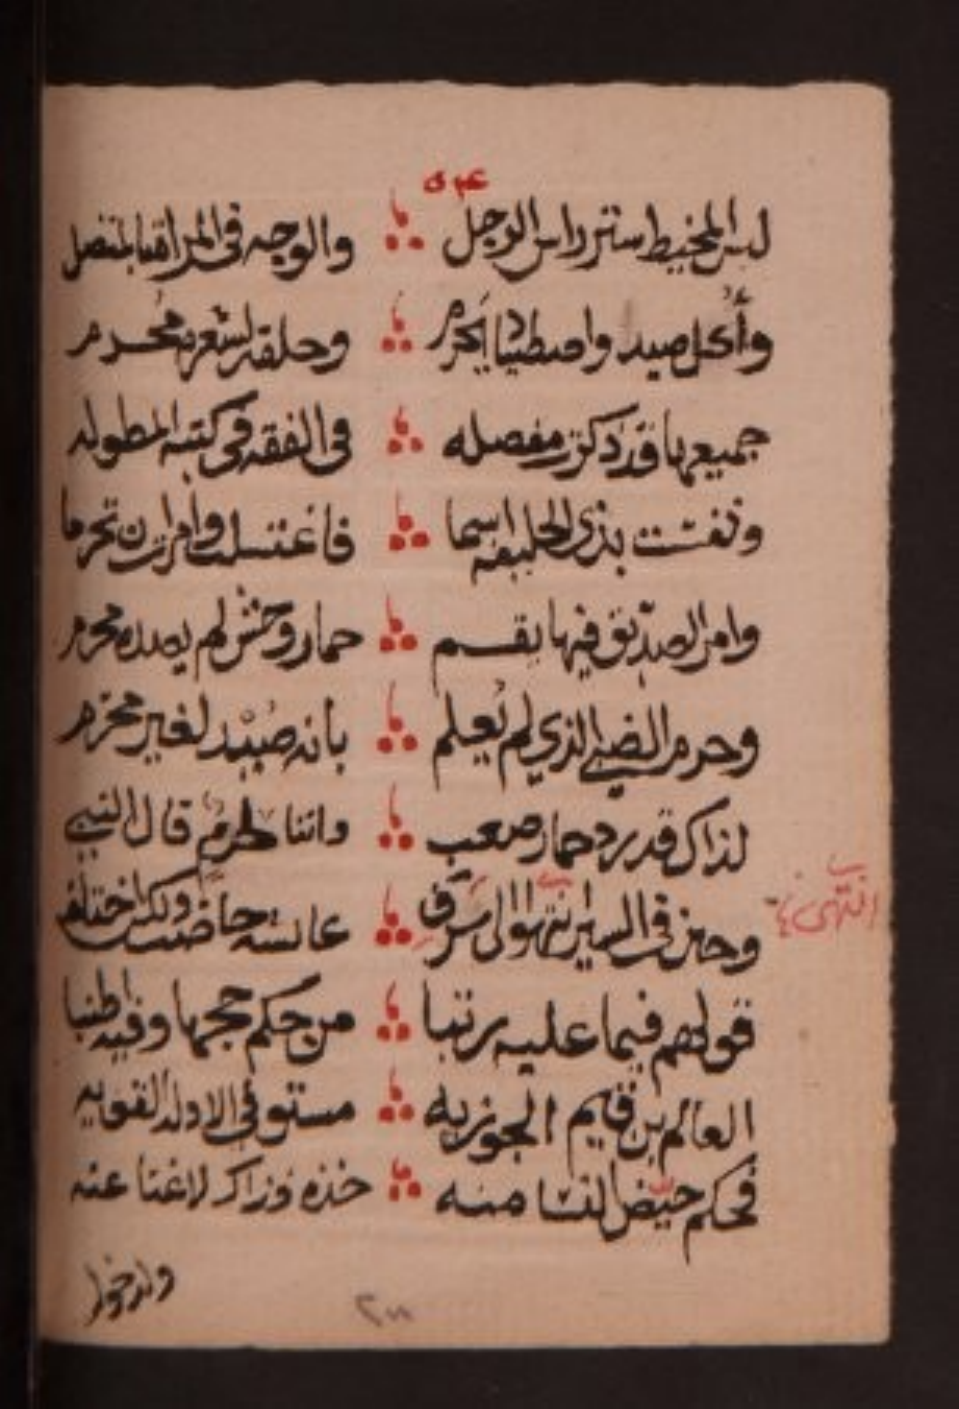 لبس المخيط ستر راس الرجل والوجه في المراة
وأكل صيد واصطياد يحرم وحلقه لشعره محرم
جميعها قد ذكرت مفصله في الفقه في كتبه المطوله
ونفست بذي الحليفه اسما فاغتسلت وامرت ان تحرما
وامر الصديق فيها يقسم حمار وحش لم يصده محرم
وحرم الذي لم يعلم بانه صيد لغير محرم
لذاك قد رد حمار صعب واننا لحرم قال النبي
وحين في السير انتهوا الى سرف عائشة حاضت وكم اختلف
قولهم فيما عليه رتبا من حكم حجها وفيه اطنبا
العالم بن قيم الجوزيه مستوفي الادلة القويه
فحكم حيض النسا منه خذه وذاك لا غنا عنه